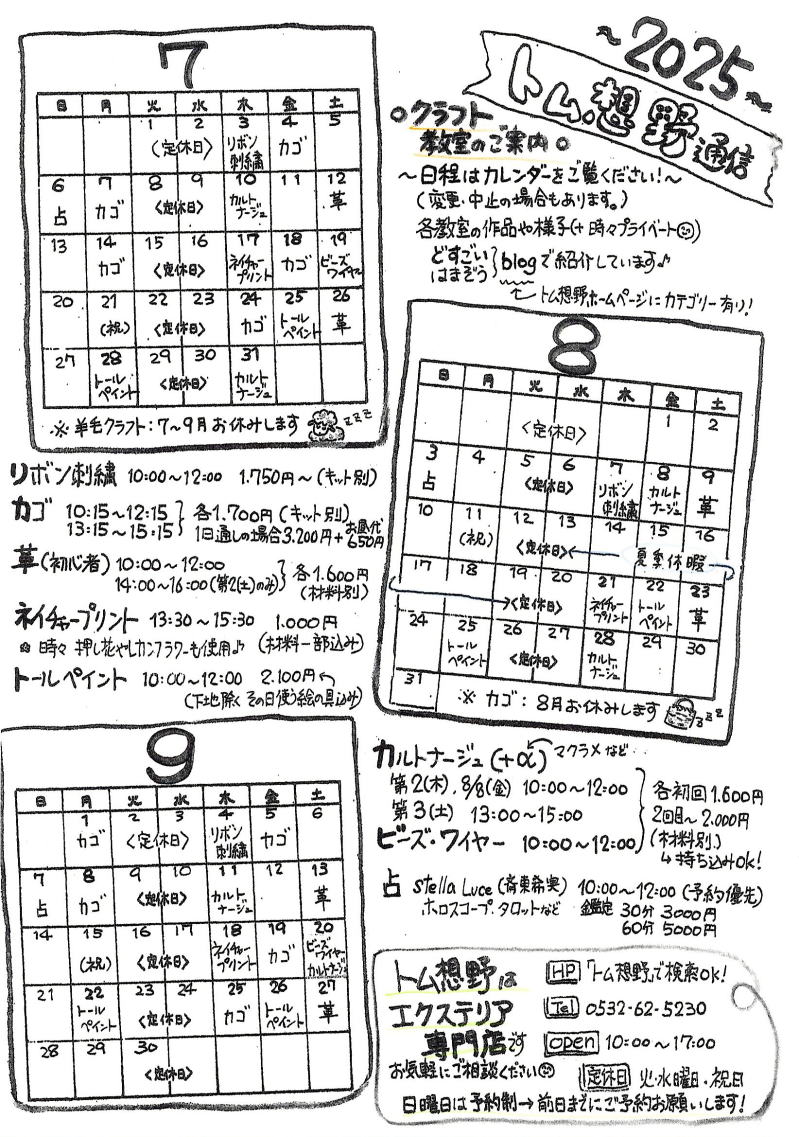 ～2025～
トム想野通信
○クラフト
教室のご案内○
～日程はカレンダーをご覧ください！～
（変更・中止の場合もあります。）
各教室の作品や様子(+時々プライベート)
どすごい
はまぞう blogで紹介しています♪
トム想野ホームページにカテゴリー有り！
7
日 月 火 水 木 金 土
1 2 3 4 5
〈定休日〉 リボン刺繍 カゴ
6 7 8 9 10 11 12
占 カゴ 〈定休日〉 カルトナージュ 革
13 14 15 16 17 18 19
カゴ 〈定休日〉 ネイチャープリント カゴ ビーズワイヤー
20 21 22 23 24 25 26
(祝) 〈定休日〉 カゴ トールペイント 革
27 28 29 30 31
トールペイント 〈定休日〉 カルトナージュ
※ 羊毛クラフト：7～9月お休みします zzz
8
日 月 火 水 木 金 土
1 2
〈定休日〉
3 4 5 6 7 8 9
占 〈定休日〉 リボン刺繍 カルトナージュ 革
10 11 12 13 14 15 16
(祝) 〈定休日〉 夏季休暇
17 18 19 20 21 22 23
〈定休日〉 ネイチャープリント トールペイント 革
24 25 26 27 28 29 30
トールペイント 〈定休日〉 カルトナージュ
31
※ カゴ：8月お休みします zzz
リボン刺繍 10:00～12:00 1.750円～(キット別)
カゴ 10:15～12:15
13:15～15:15 各1.700円(キット別)
1日通しの場合3.200円+お昼代650円
革(初心者) 10:00～12:00
14:00～16:00(第2(土)のみ) 各1.600円
(材料別)
ネイチャープリント 13:30～15:30 1.000円
時々 押し花やレカンフラワーも使用♪ (材料一部込み)
トールペイント 10:00～12:00 2.100円
(下地除く その日使う絵の具込み)
9
日 月 火 水 木 金 土
1 2 3 4 5 6
カゴ 〈定休日〉 リボン刺繍 カゴ
7 8 9 10 11 12 13
占 カゴ 〈定休日〉 カルトナージュ 革
14 15 16 17 18 19 20
(祝) 〈定休日〉 ネイチャープリント カゴ ビーズワイヤーカルトナージュ
21 22 23 24 25 26 27
トールペイント 〈定休日〉 カゴ トールペイント 革
28 29 30
〈定休日〉
カルトナージュ(+α) マクラメなど…
第2(木)、8/8(金) 10:00～12:00
第3(土) 13:00～15:00
ビーズ・ワイヤー 10:00～12:00
各初回1.600円
2回目～2.000円
(材料別)
↳持ち込みOK！
占 stella Luce (斉東希実) 10:00～12:00 (予約優先)
ホロスコープ、タロットなど 鑑定 30分 3000円
60分 5000円
トム想野は
エクステリア
専門店です
お気軽にご相談ください
HP 「トム想野」で検索OK！
Tel 0532-62-5230
open 10:00～17:00
定休日 火・水曜日・祝日
日曜日は予約制→前日までにご予約お願いします！